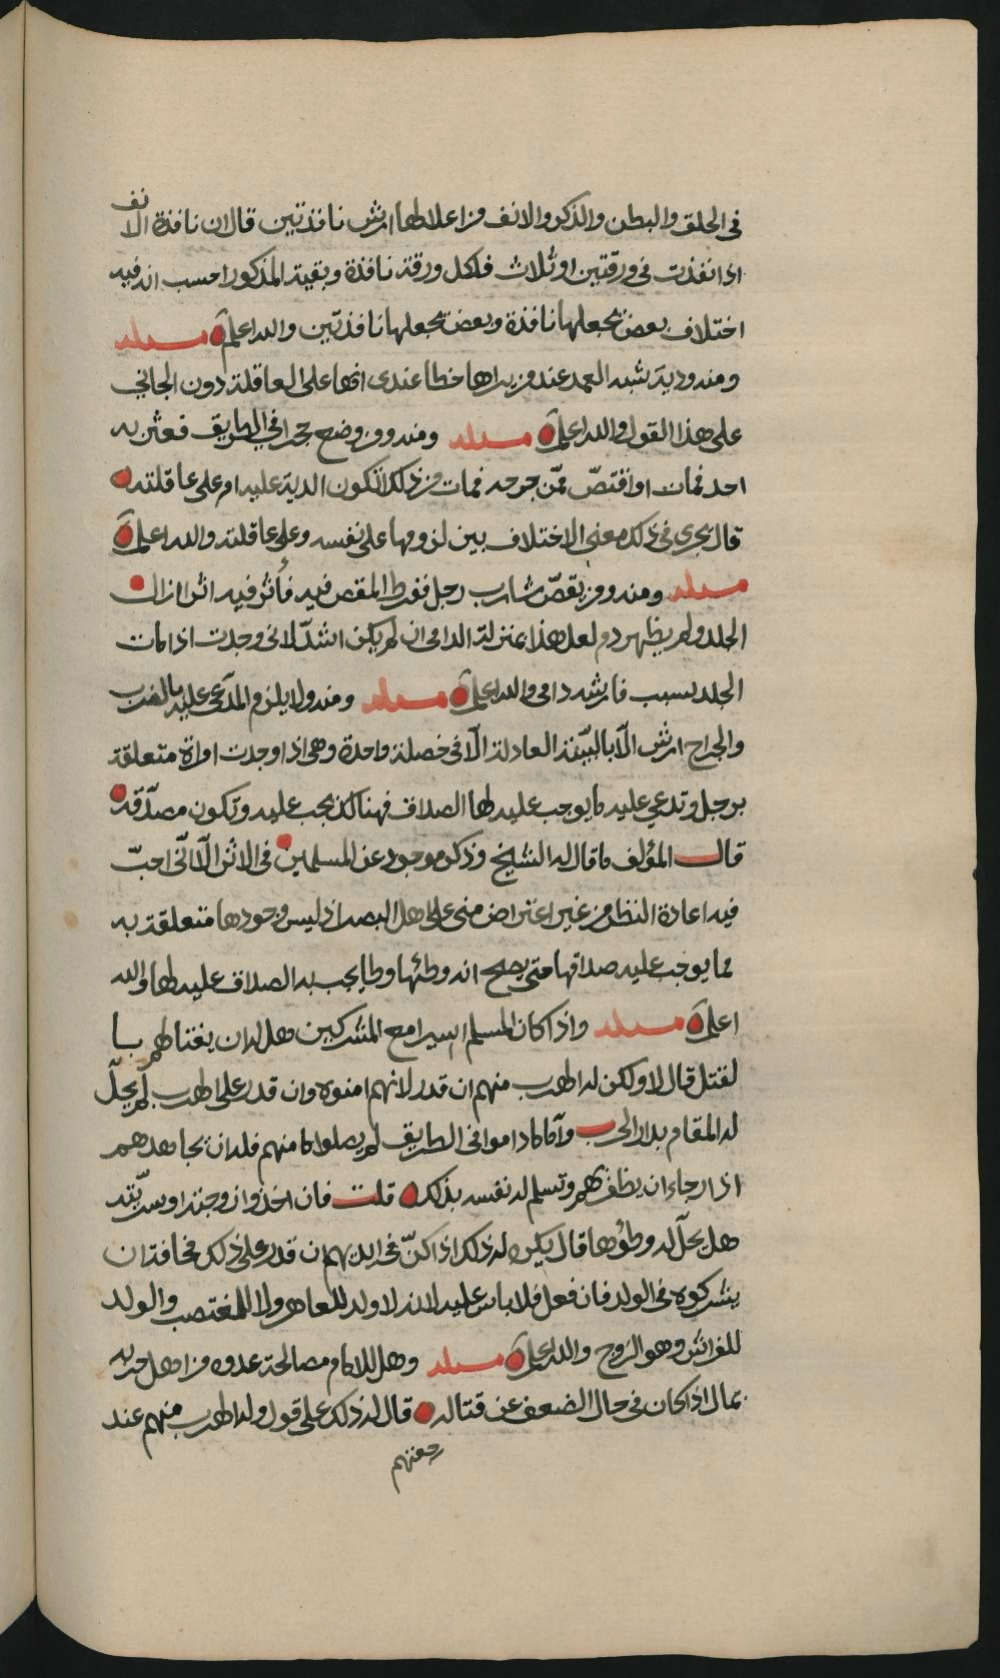 في الحلق والبطن والذكر والانف من اعلاطها ارش نافذتين قال ان نافذة الانف
اذا نفذت في ورقتين او ثلاث فلكل ورقة نافذة وبقية المذكور احسب انه فيه
اختلاف بعض يجعلها نافذة وبعض يجعلها نافذتين والله اعلم مسئله
ومنه ودية شبه العمد عند من يراها خطا عندى انها على العاقلة دون الجاني
على هذا القول والله اعلم مسئله ومنه ومن وضع حجرا في الطريق فعثر به
احد فمات او اقتصّ ممّن جرحه فمات من ذلك اتكون الدية عليه ام على عاقلته
قال يجرى في ذلك معنى الاختلاف بين لزومها على نفسه وعلى عاقلته والله اعلم
مسئله ومنه ومن يقصّ شارب رجل ففرط المقص فيه فأثر فيه اثر ازال
الجلد ولم يظهر دم لعل هذا بمنزلة الدامى ان لم يكن اشدّ لاني وجدت اذا مات
الجلد بسبب فارشه دامى والله اعلم مسئله ومنه ولا يلزم المدّعى عليه بالضرب
والجراح ارش الّا بالبيّنة العادلة الّا في خصلة واحدة وهي اذا وجدت امراة متعلقة
برجل وتدعي عليه ما يوجب عليه لها الصداق فهنالك يجب عليه وتكون مصدّقة
قال المؤلف ما قاله الشيخ وذكر موجود عن المسلمين في الاثر الّا انّي احبّ
فيه اعادة النظر من غير اعتراض منى على اهل البصر اذ ليس وجودها متعلقة به
مما يوجب عليه صداقها متى يصح انه وطئها وطا يجب به الصداق عليه لها والله
اعلم مسئله واذا كان المسلم اسيرا مع المشركين هل له ان يغتالهم با
لقتل قال لا ولكن له الهرب منهم ان قدر لانهم امنوه وان قدر على الهرب لم يحلّ
له المقام بدار الحرب وامّا ما داموا في الطريق لم يصلوا مامنهم فله ان يجاهدهم
اذا رجاء ان يظفر بهم وتسلم له نفسه بذلك قلت فان اخذوا زوجته او سريّته
هل يحلّ له وطؤها قال يكره له ذلك اذا كنّ في ايديهم ان قدر على ذلك مخافة ان
يشركوه في الولد فان فعل فلا باس عليه لانه لا ولد للعاهر ولا للمغتصب والولد
للفراش وهو الزوج والله اعلم مسئله وهل للامام مصالحة عدوه من اهل حربه
بمال اذا كان في حال الضعف عن قتاله قال له ذلك على قول وله الهرب منهم عند